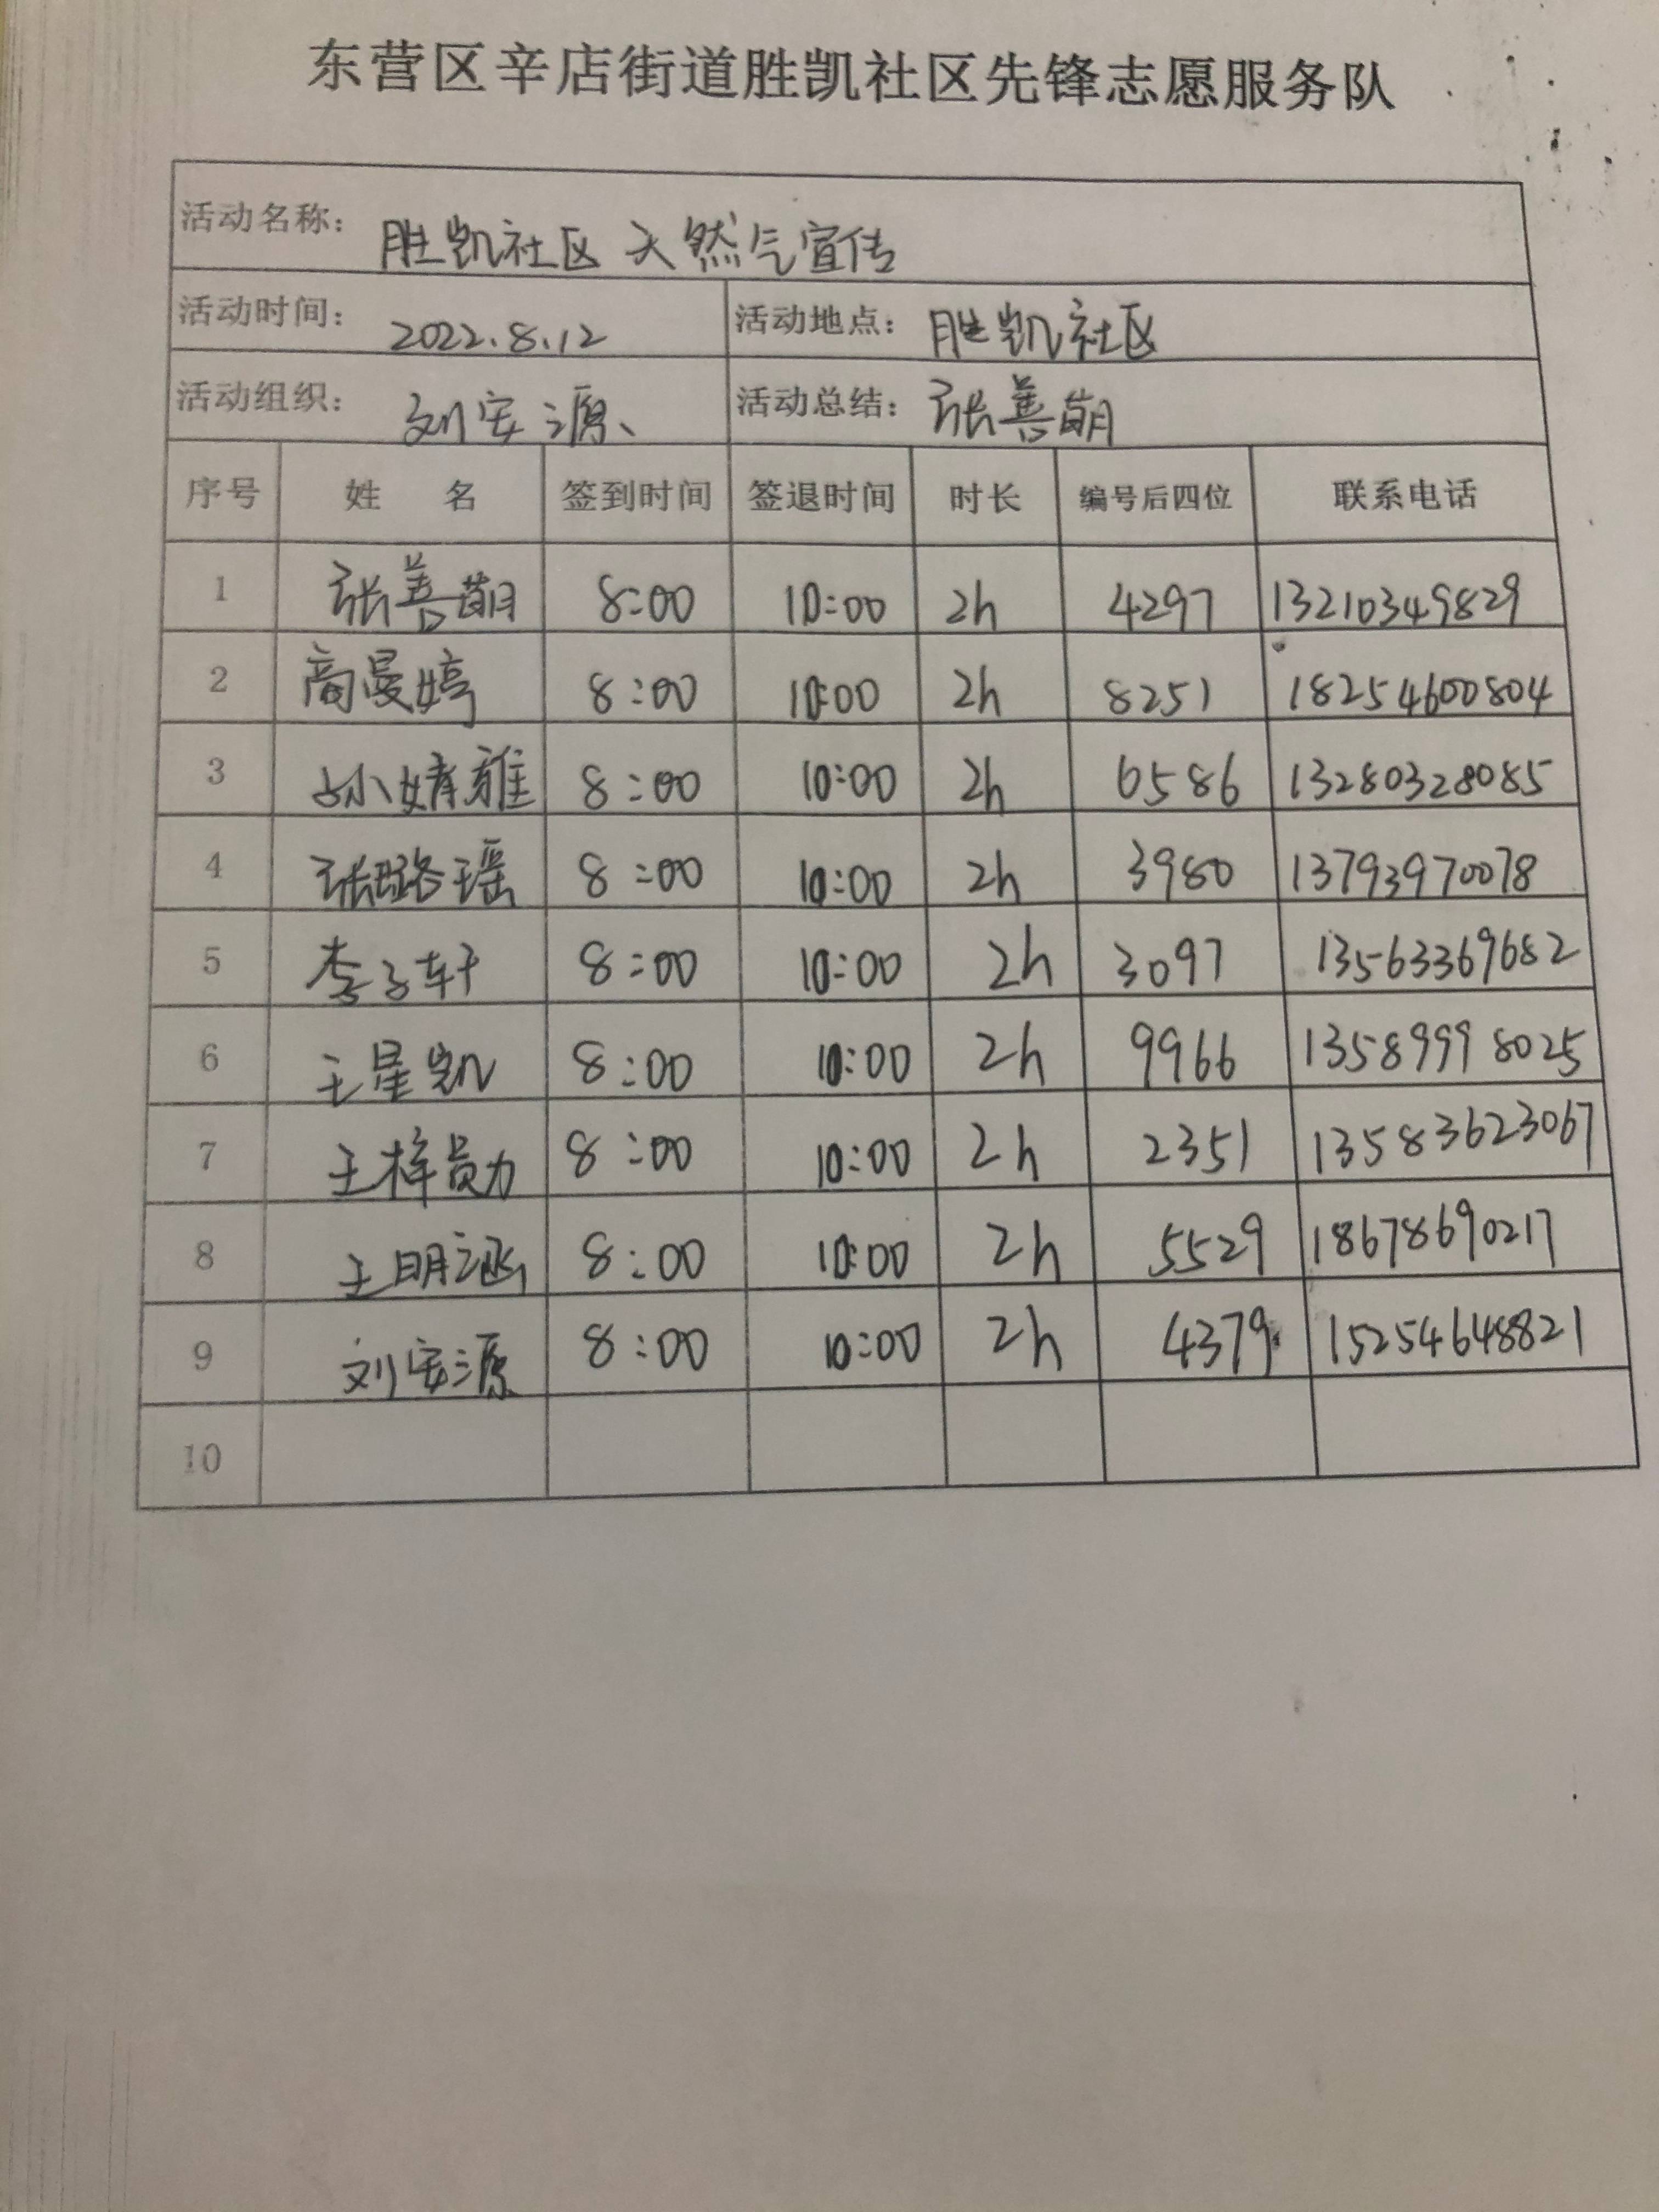 东营区辛店街道胜凯社区先锋志愿服务队
活动名称： 胜凯社区 天然气宣传
活动时间： 2022.8.12 活动地点： 胜凯社区
活动组织： 刘安源、 活动总结： 张善萌
序号 姓 名 签到时间 签退时间 时长 编号后四位 联系电话
1 张善萌 8:00 10:00 2h 4297 13210349829
2 商曼婷 8:00 10:00 2h 8251 18254600804
3 孙婧雅 8:00 10:00 2h 6586 13280328085
4 张璐瑶 8:00 10:00 2h 3980 13793970078
5 李子轩 8:00 10:00 2h 3097 13563369682
6 王星凯 8:00 10:00 2h 9966 13589998025
7 王梓勛 8:00 10:00 2h 2351 13583623067
8 王明涵 8:00 10:00 2h 5529 18678690217
9 刘安源 8:00 10:00 2h 4379 15254648821
10